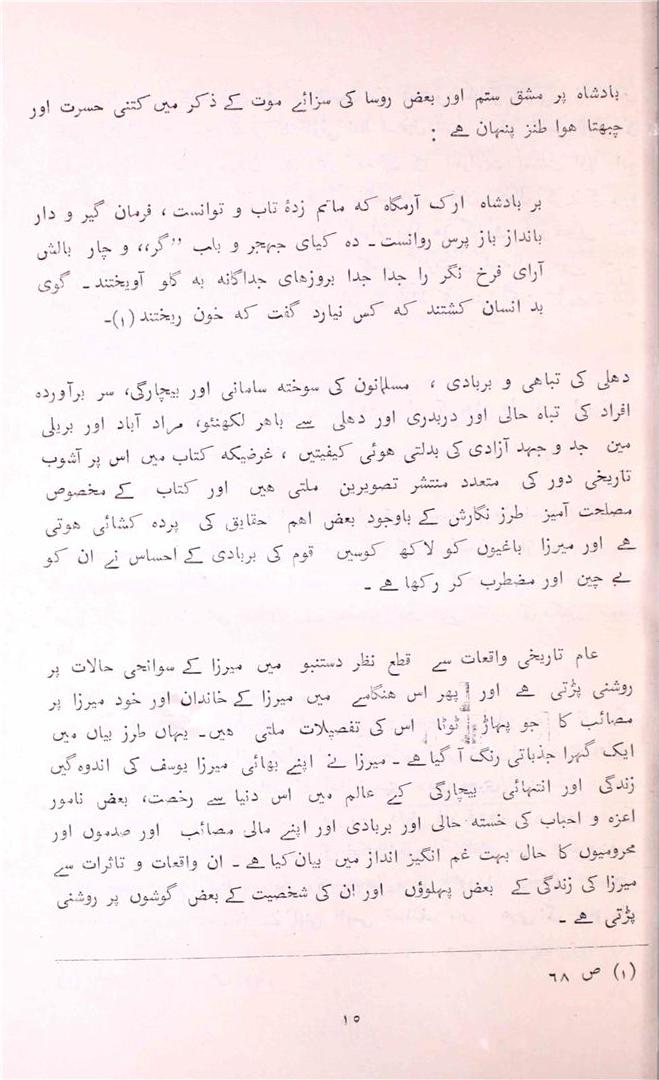 بادشاہ پر مشق ستم اور بعض روسا کی سزائے موت کے ذکر میں کتنی حسرت اور
چبھتا ھوا طنز پنہان ہے :
بر بادشاہ ارک آرمگاہ کہ ماتم زدۂ تاب و توانست ، فرمان گیر و دار
بانداز باز پرس روانست ـ دہ کیای جہجر و بلب ’’گر،، و چار بالش
آرای فرخ نگر را جدا جدا بروزھای جداگانہ بہ گلو آویختند ـ گوی
بد انسان کشتند کہ کس نیارد گفت کہ خون ریختند (۱)ـ
دھلی کی تباھی و بربادی ، مسلمانون کی سوختہ سامانی اور بیچارگی، سر برآوردہ
افراد کی تباہ حالی اور دربدری اور دھلی سے باھر لکھنئو، مراد آباد اور بریلی
مین جد و جہد آزادی کی بدلتی ھوئی کیفیتیں ، غرضیکہ کتاب میں اس پر آشوب
تاریخی دور کی متعدد منتشر تصویرین ملتی ھیں اور کتاب کے مخصوص
مصلحت آمیز طرز نگارش کے باوجود بعض اھم حقایق کی پردہ کشائی ھوتی
ھے اور میرزا باغیوں کو لاکھ کوسیں قوم کی بربادی کے احساس نے ان کو
بے چین اور مضطرب کر رکھا ہے ـ
عام تاریخی واقعات سے قطع نظر دستنبو میں میرزا کے سوانحی حالات پر
روشنی پڑتی ہے اور پھر اس ھنگامے میں میرزا کے خاندان اور خود میرزا پر
مصائب کا جو پہاڑ ٹوٹا اس کی تفصیلات ملتی ھیں ـ یہاں طرز بیاں میں
ایک گہرا جذباتی رنگ آ گیا ہے ـ میرزا نے اپنے بھائی میرزا یوسف کی اندوہ گیں
زندگی اور انتھائی بیچارگی کے عالم میں اس دنیا سے رخصت، بعض نامور
اعزہ و احباب کی خستہ حالی اور بربادی اور اپنے مالی مصائب اور صدموں اور
محرومیوں کا حال بہت غم انگیز انداز میں بیان کیا ہے ـ ان واقعات و تاثرات سے
میرزا کی زندگی کے بعض پہلوؤں اور ان کی شخصیت کے بعض گوشوں پر روشنی
پڑتی ہے ـ
(۱) ص ۶۸
۱۵